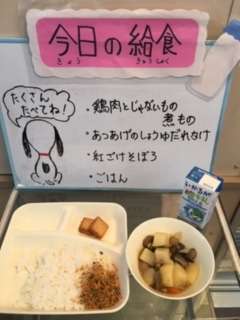 今日の給食
きょう きゅうしょく
たくさん
たべてね!
・鶏肉とじゃないもの
煮もの
・あつあげのしょうゆだれかけ
・紅ごけそぼろ
・ごはん